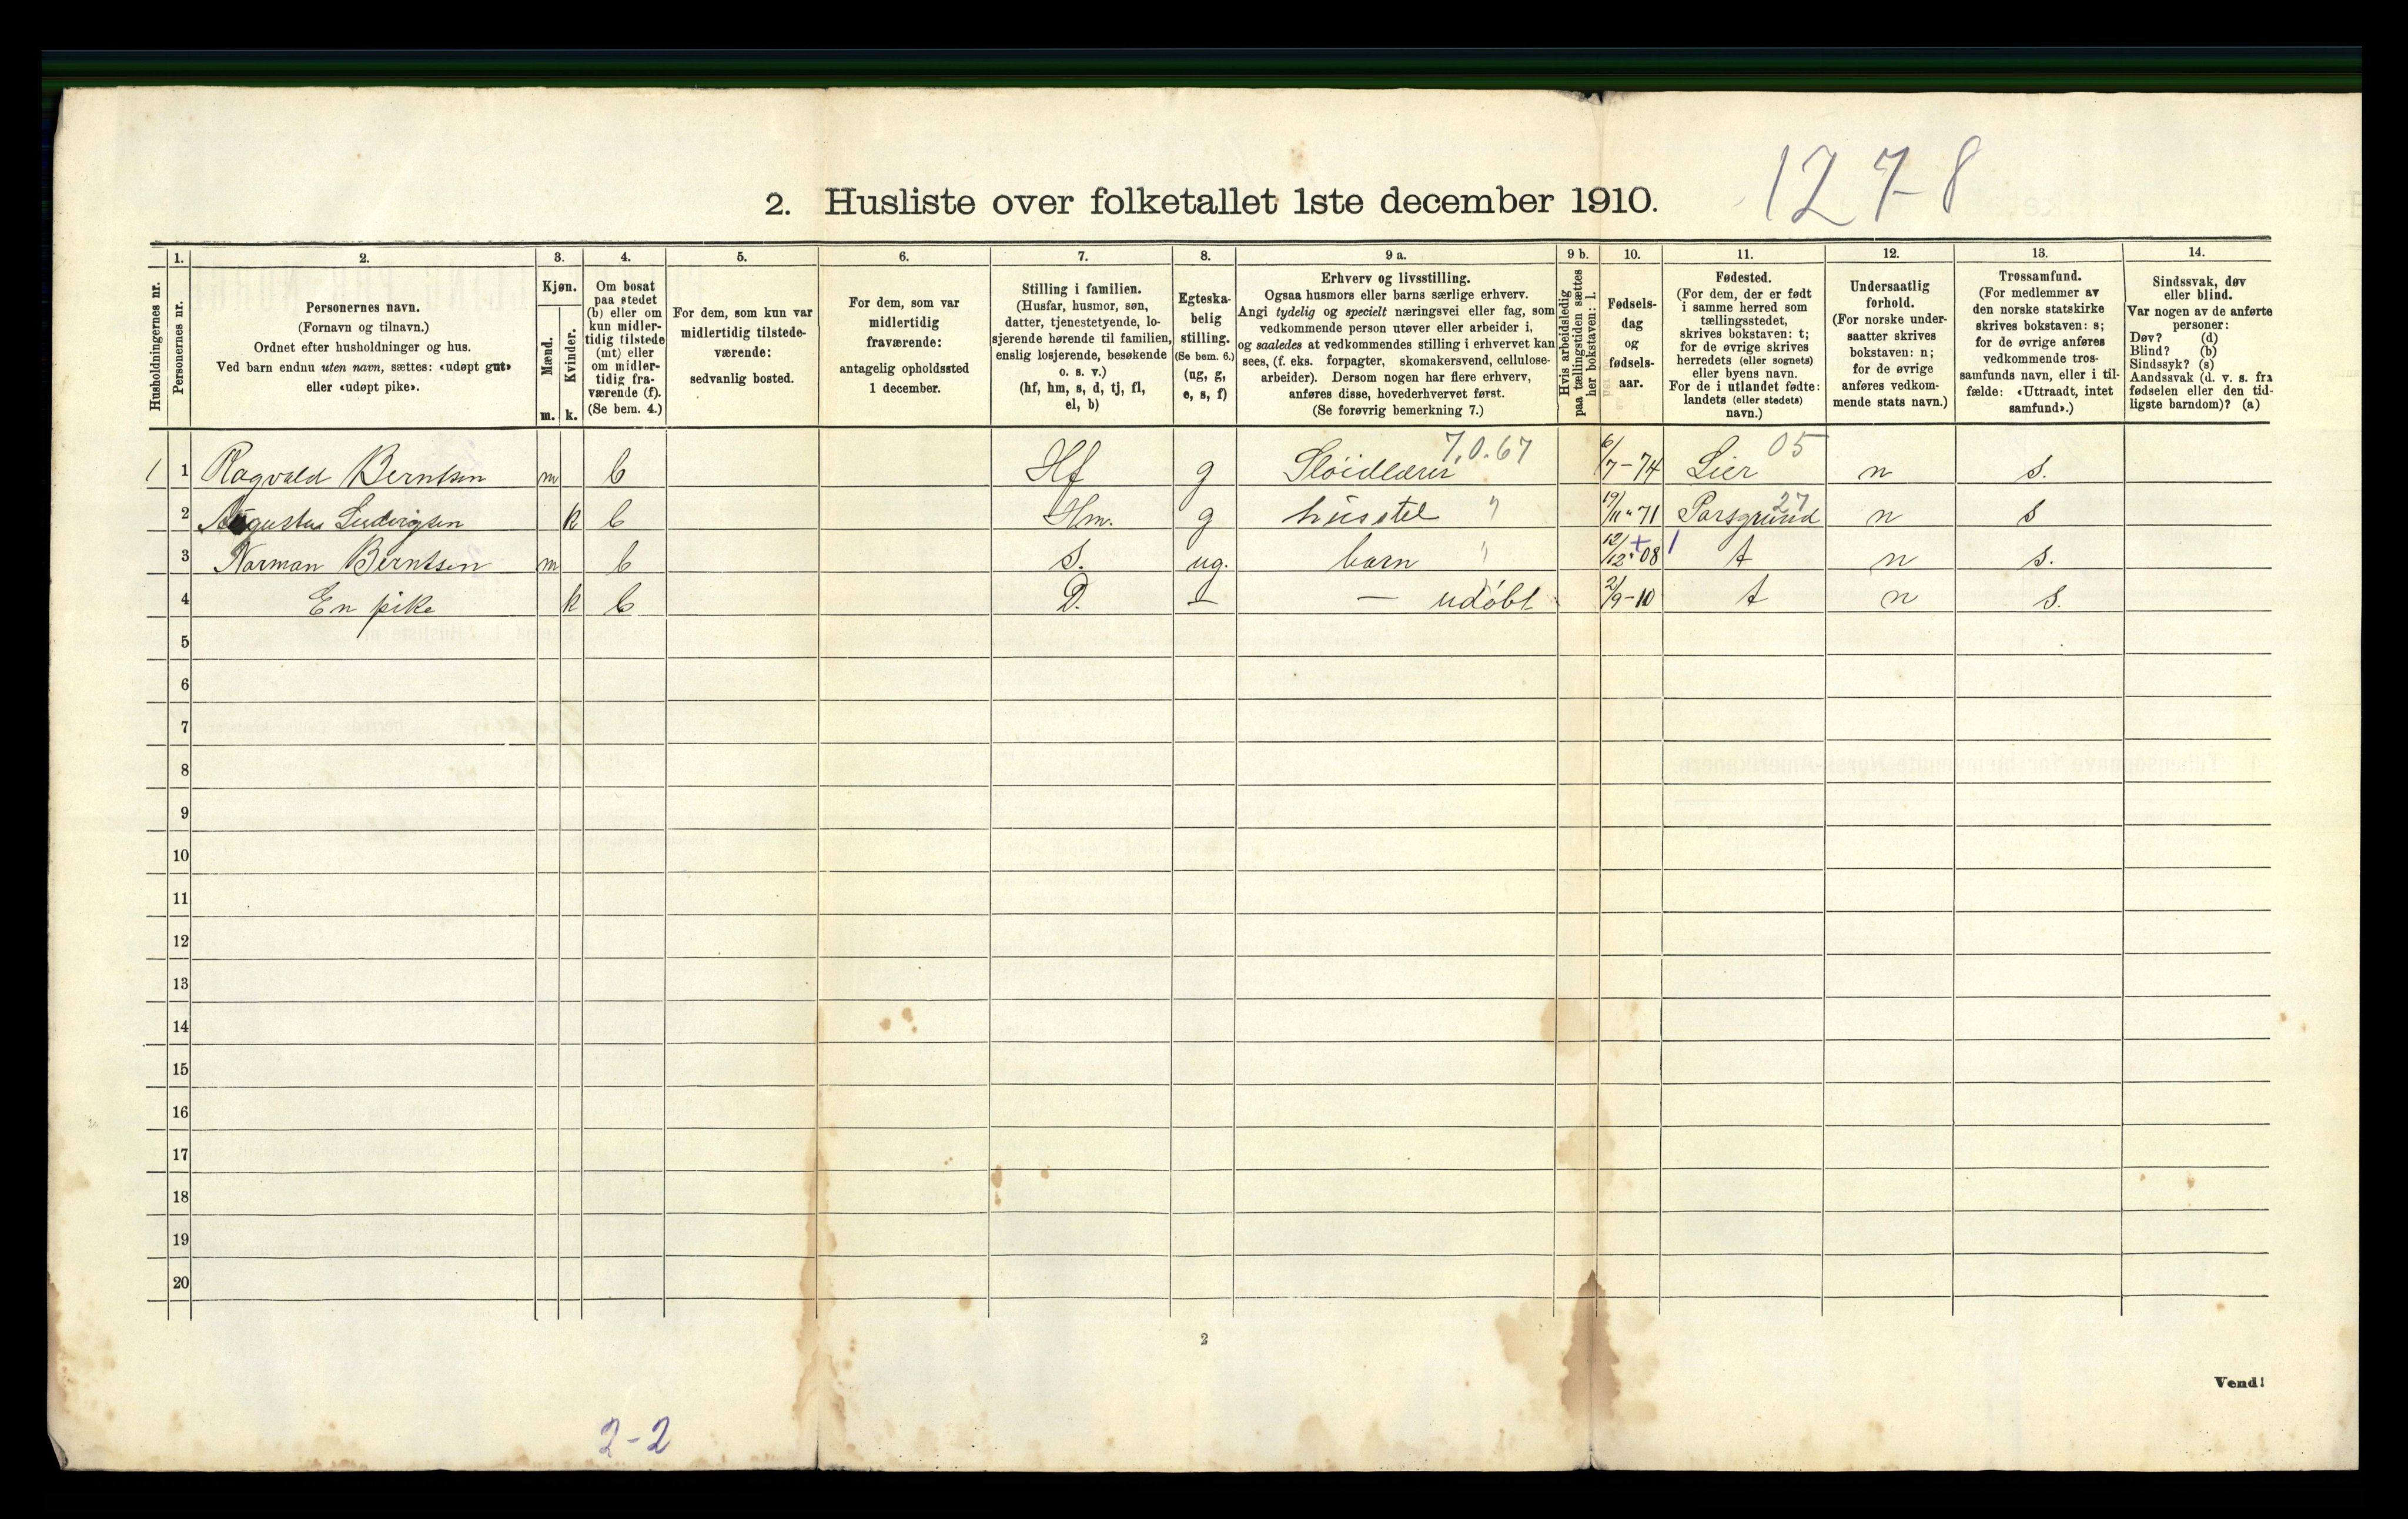 127-8
2. Husliste over folketallet 1ste december 1910.
Husholdningernes nr.
1.
Personernes nr.
2.
Personernes navn.
(Fornavn og tilnavn.)
Ordnet efter husholdninger og hus.
Ved barn endnu uten navn, sættes: «udøpt gut»
eller «udøpt pike».
3.
Kjøn.
Mænd.
Kvinder.
m. k.
4.
Om bosat
paa stedet
(b) eller om
kun midler-
tidig tilstede
(mt) eller
om midler-
tidig fra-
værende (f).
(Se bem. 4.)
5.
For dem, som kun var
midlertidig tilstede-
værende:
sedvanlig bosted.
6.
For dem, som var
midlertidig
fraværende:
antagelig opholdssted
1 december.
7.
Stilling i familien.
(Husfar, husmor, søn,
datter, tjenestetyende, lo-
sjerende hørende til familien,
enslig losjerende, besøkende
o. s. v.)
(hf, hm, s, d, tj, fl,
el, b)
8.
Egteska-
belig
stilling.
(Se bem. 6.)
(ug, g,
e, s, f)
9 a.
Erhverv og livsstilling.
Ogsaa husmors eller barns særlige erhverv.
Angi tydelig og specielt næringsvei eller fag, som
vedkommende person utøver eller arbeider i,
og saaledes at vedkommendes stilling i erhvervet kan
sees, (f. eks. forpagter, skomakersvend, cellulose-
arbeider). Dersom nogen har flere erhverv,
anføres disse, hovederhvervet først.
(Se forøvrig bemerkning 7.)
9 b.
Hvis arbeidsledig
paa tællingstiden sættes
her bokstaven: l.
10.
Fødsels-
dag
og
fødsels-
aar.
11.
Fødested.
(For dem, der er født
i samme herred som
tællingsstedet,
skrives bokstaven: t;
for de øvrige skrives
herredets (eller sognets)
eller byens navn.
For de i utlandet fødte:
landets (eller stedets)
navn.)
12.
Undersaatlig
forhold.
(For norske under-
saatter skrives
bokstaven: n;
for de øvrige
anføres vedkom-
mende stats navn.)
13.
Trossamfund.
(For medlemmer av
den norske statskirke
skrives bokstaven: s;
for de øvrige anføres
vedkommende tros-
samfunds navn, eller i til-
fælde: «Uttraadt, intet
samfund».)
14.
Sindssvak, døv
eller blind.
Var nogen av de anførte
personer:
Døv? (d)
Blind? (b)
Sindssyk? (s)
Aandssvak (d. v. s. fra
fødselen eller den tid-
ligste barndom)? (a)
7.0.67 05
1 1 Ragvald Berntsen m b Hf g Sløidlærer 6/7-74 Lier n s.
27
2 Augusta Ludvigsen k b Hm. g husstel " 19/11 " 71 Porsgrund n s
3 Norman Berntsen m b s. ug. barn " 12/12 " 08 + / t n s.
4 En pike k b D. — — udøbt 2/9-10 t n s.
5
6
7
8
9
10
11
12
13
14
15
16
17
18
19
20
2
Vend!
2-2